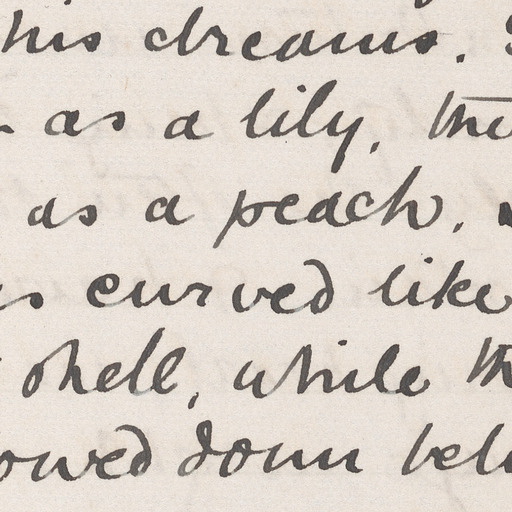 his dreams.
as a lily, the
as a peach.
curved like
shell, while th
owed down bel